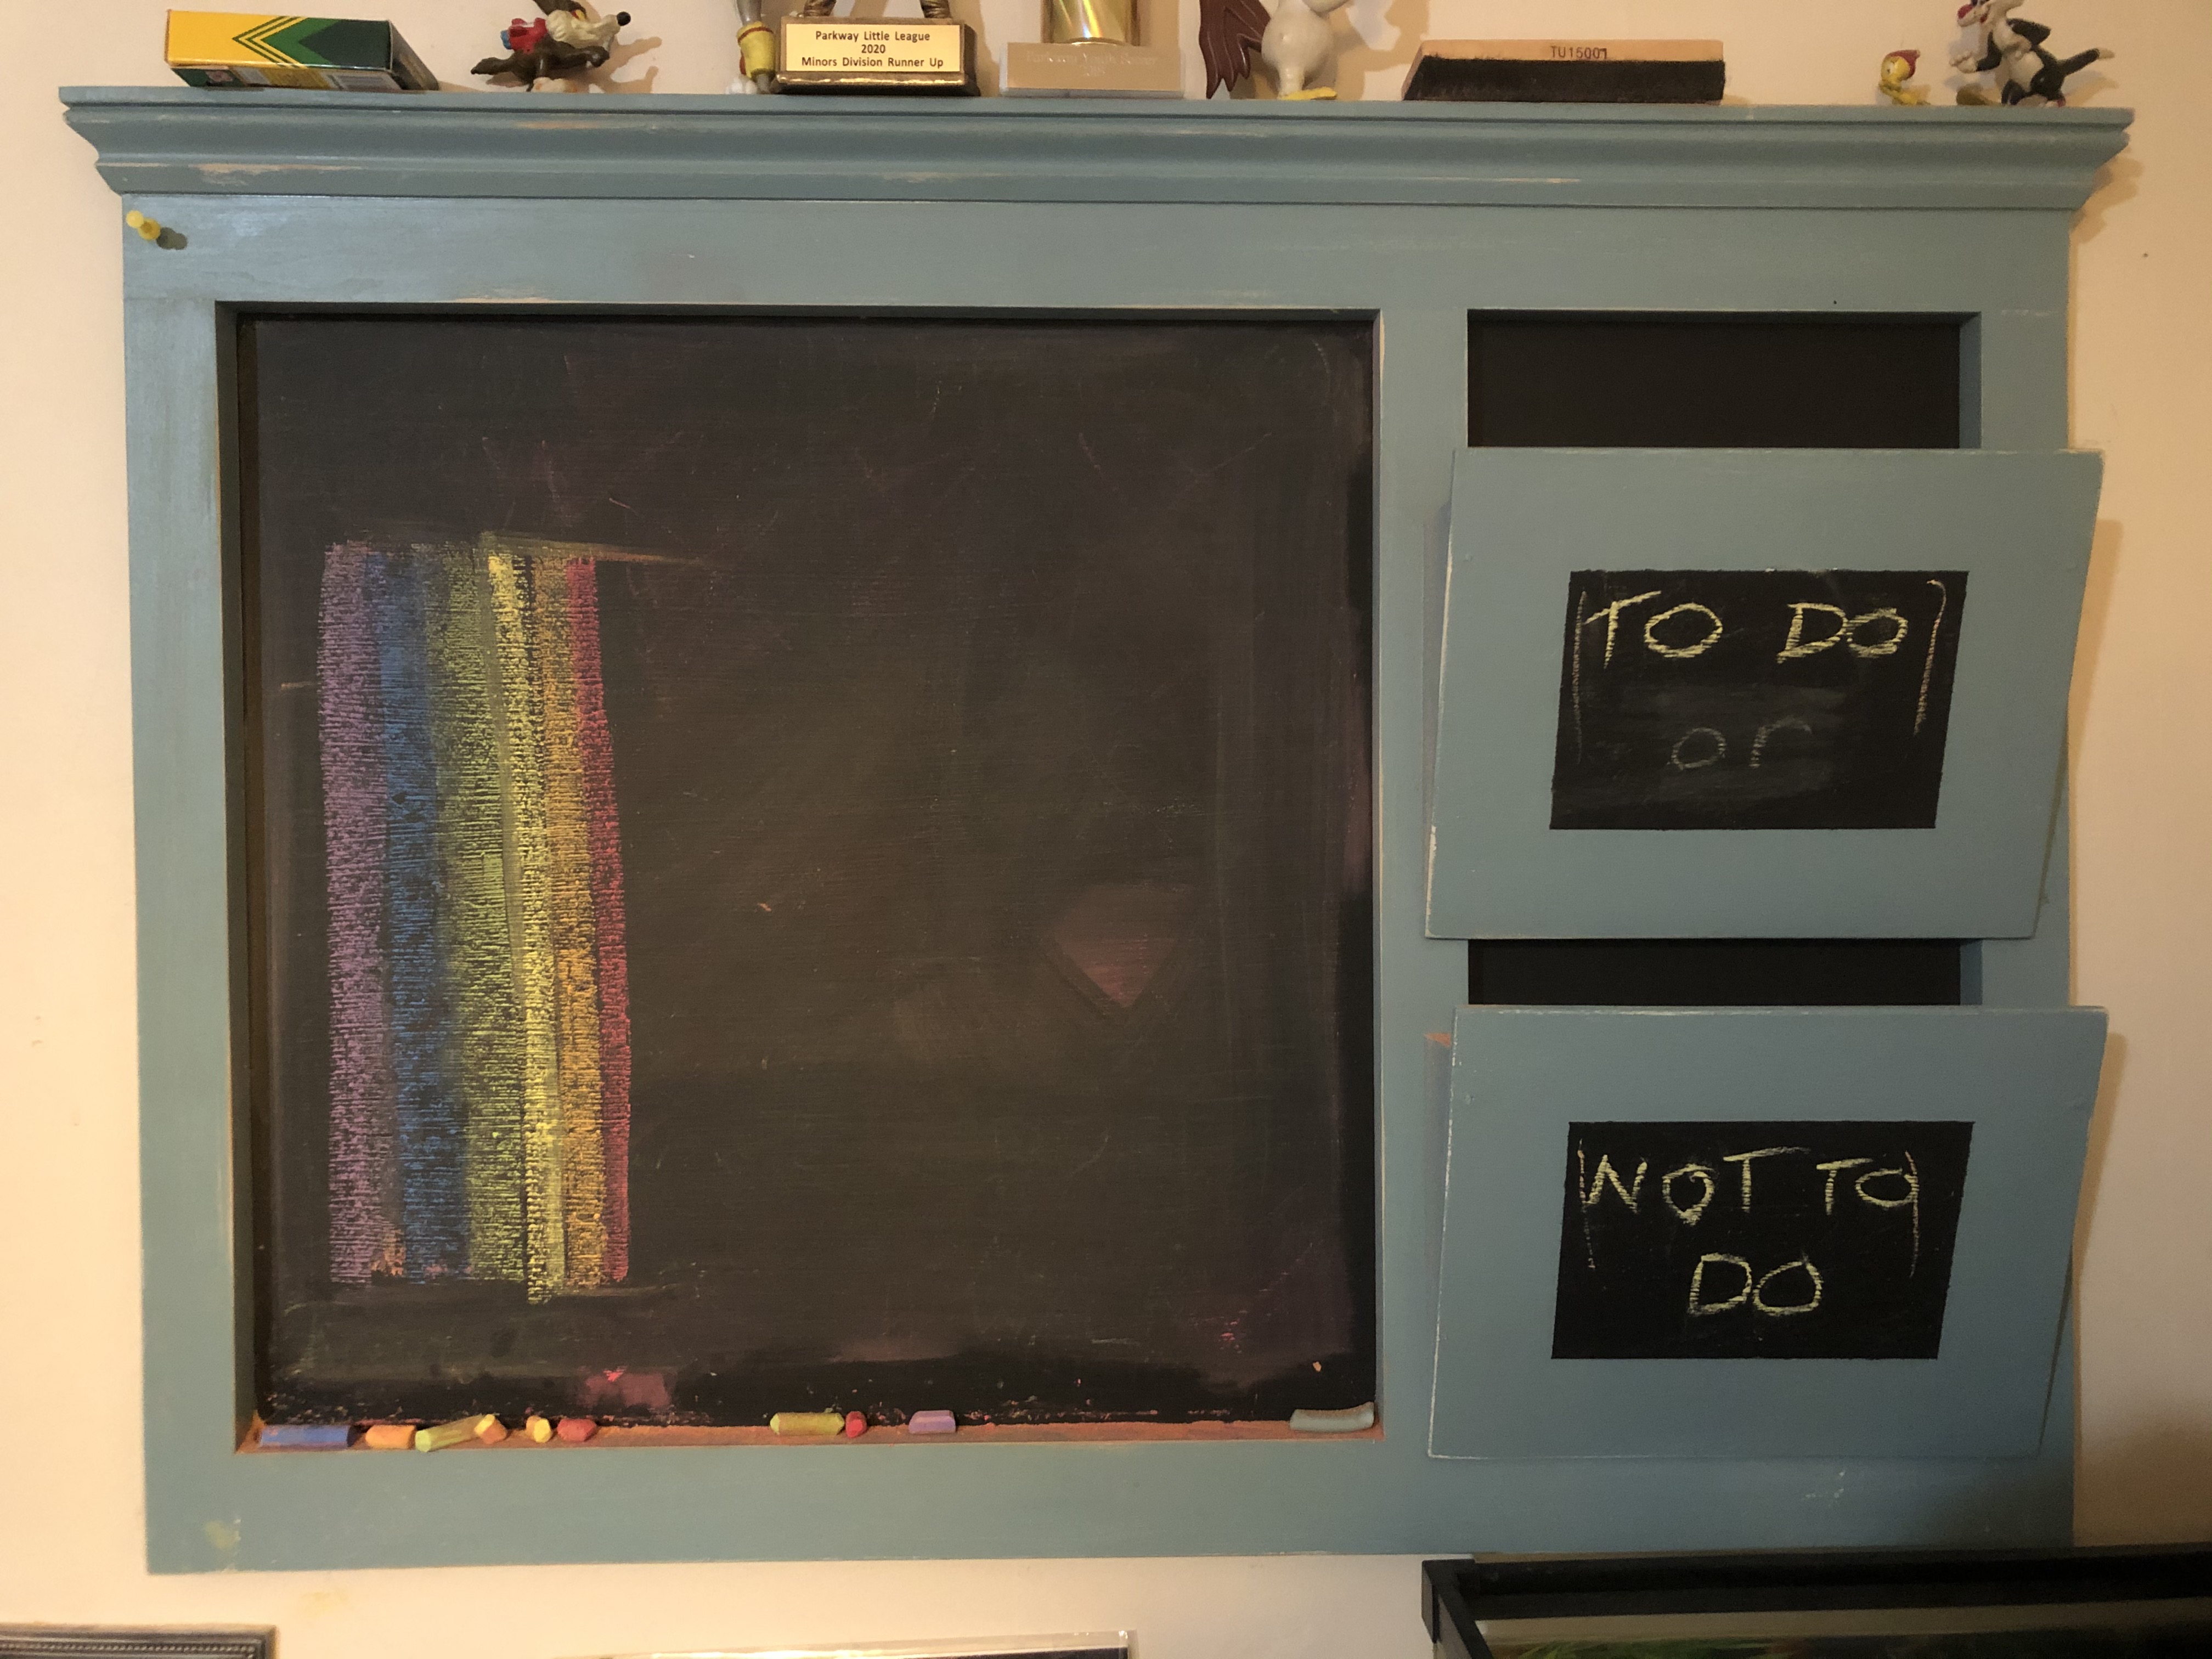 Parkway Little League
2020
Minors Division Runner Up
TU15001
TO DO
or
NOT TO
DO